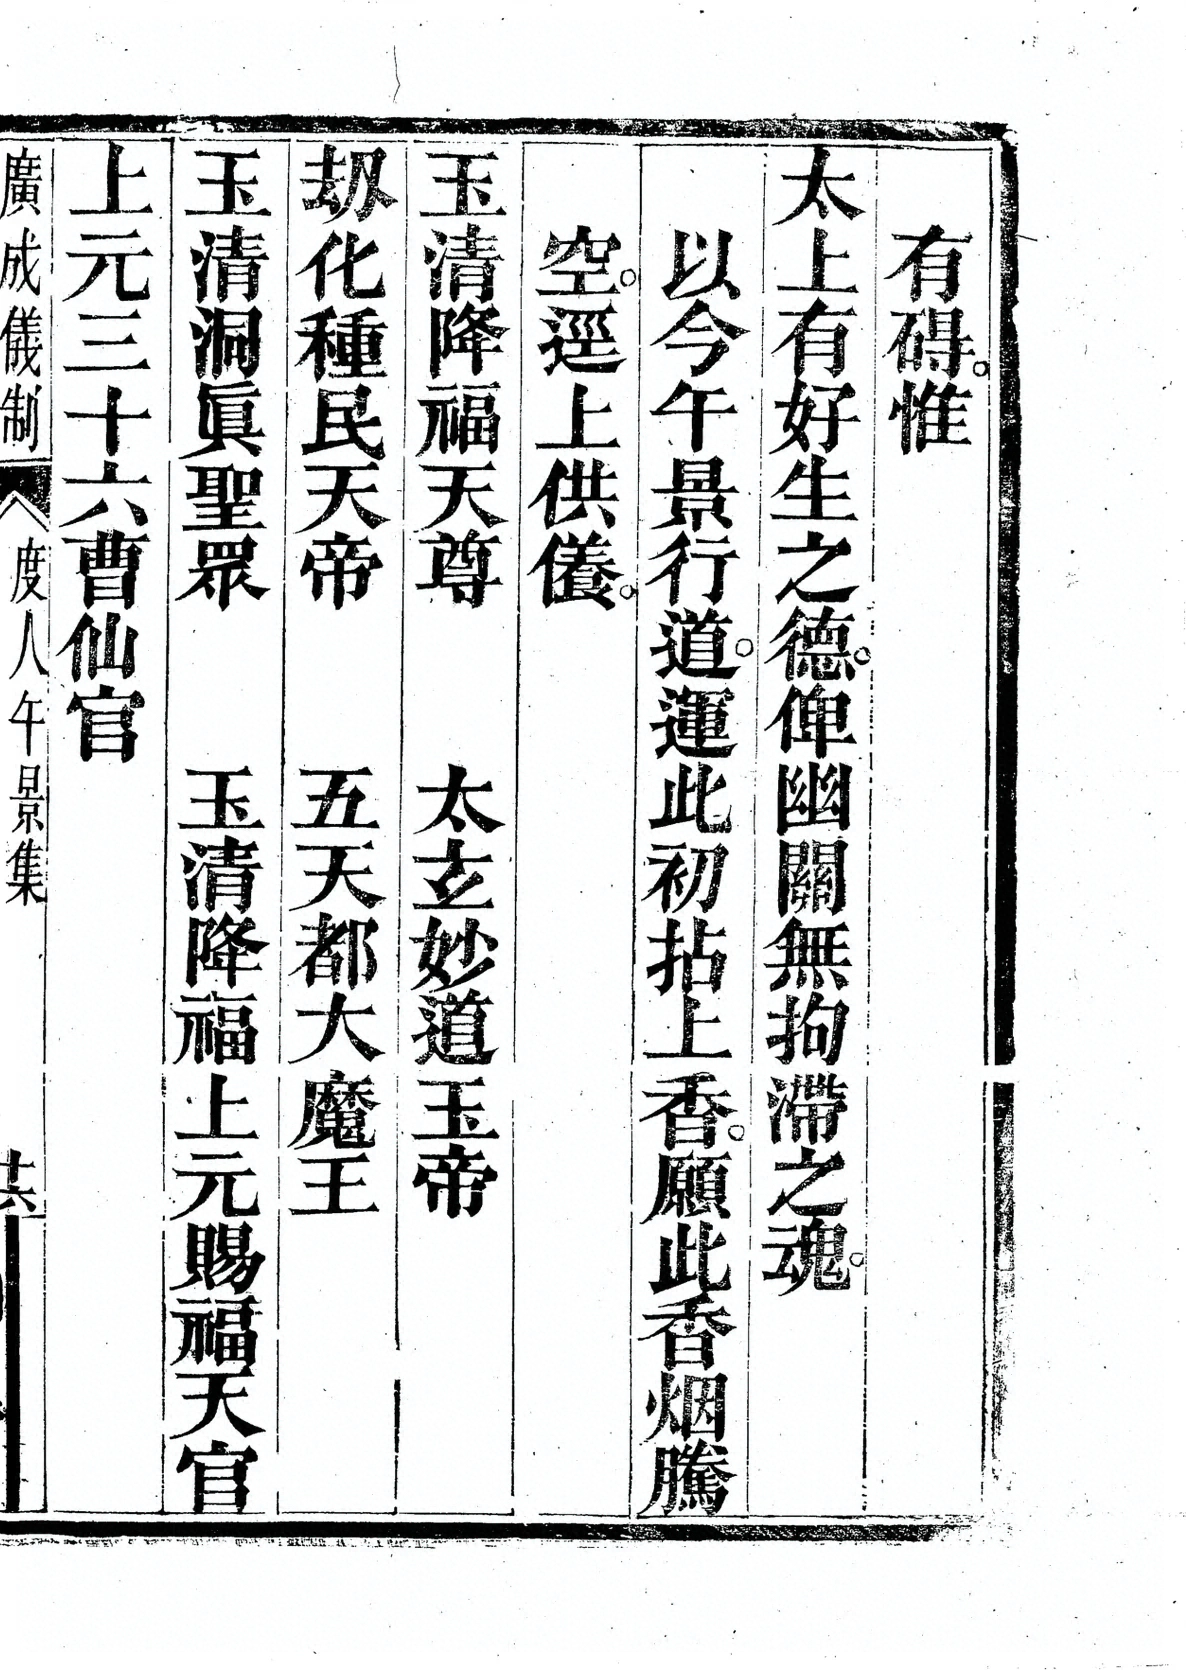 有碍。惟
太上有好生之德。俾幽關無拘滯之魂。
以今午景行道。運此初拈上香。願此香烟騰
空。逕上供養。
玉清降福天尊　太玄妙道玉帝
刼化種民天帝　五天都大魔王
玉清洞眞聖眾　玉清降福上元賜福天官
上元三十六曹仙官
廣成儀制　度人午景集　十六